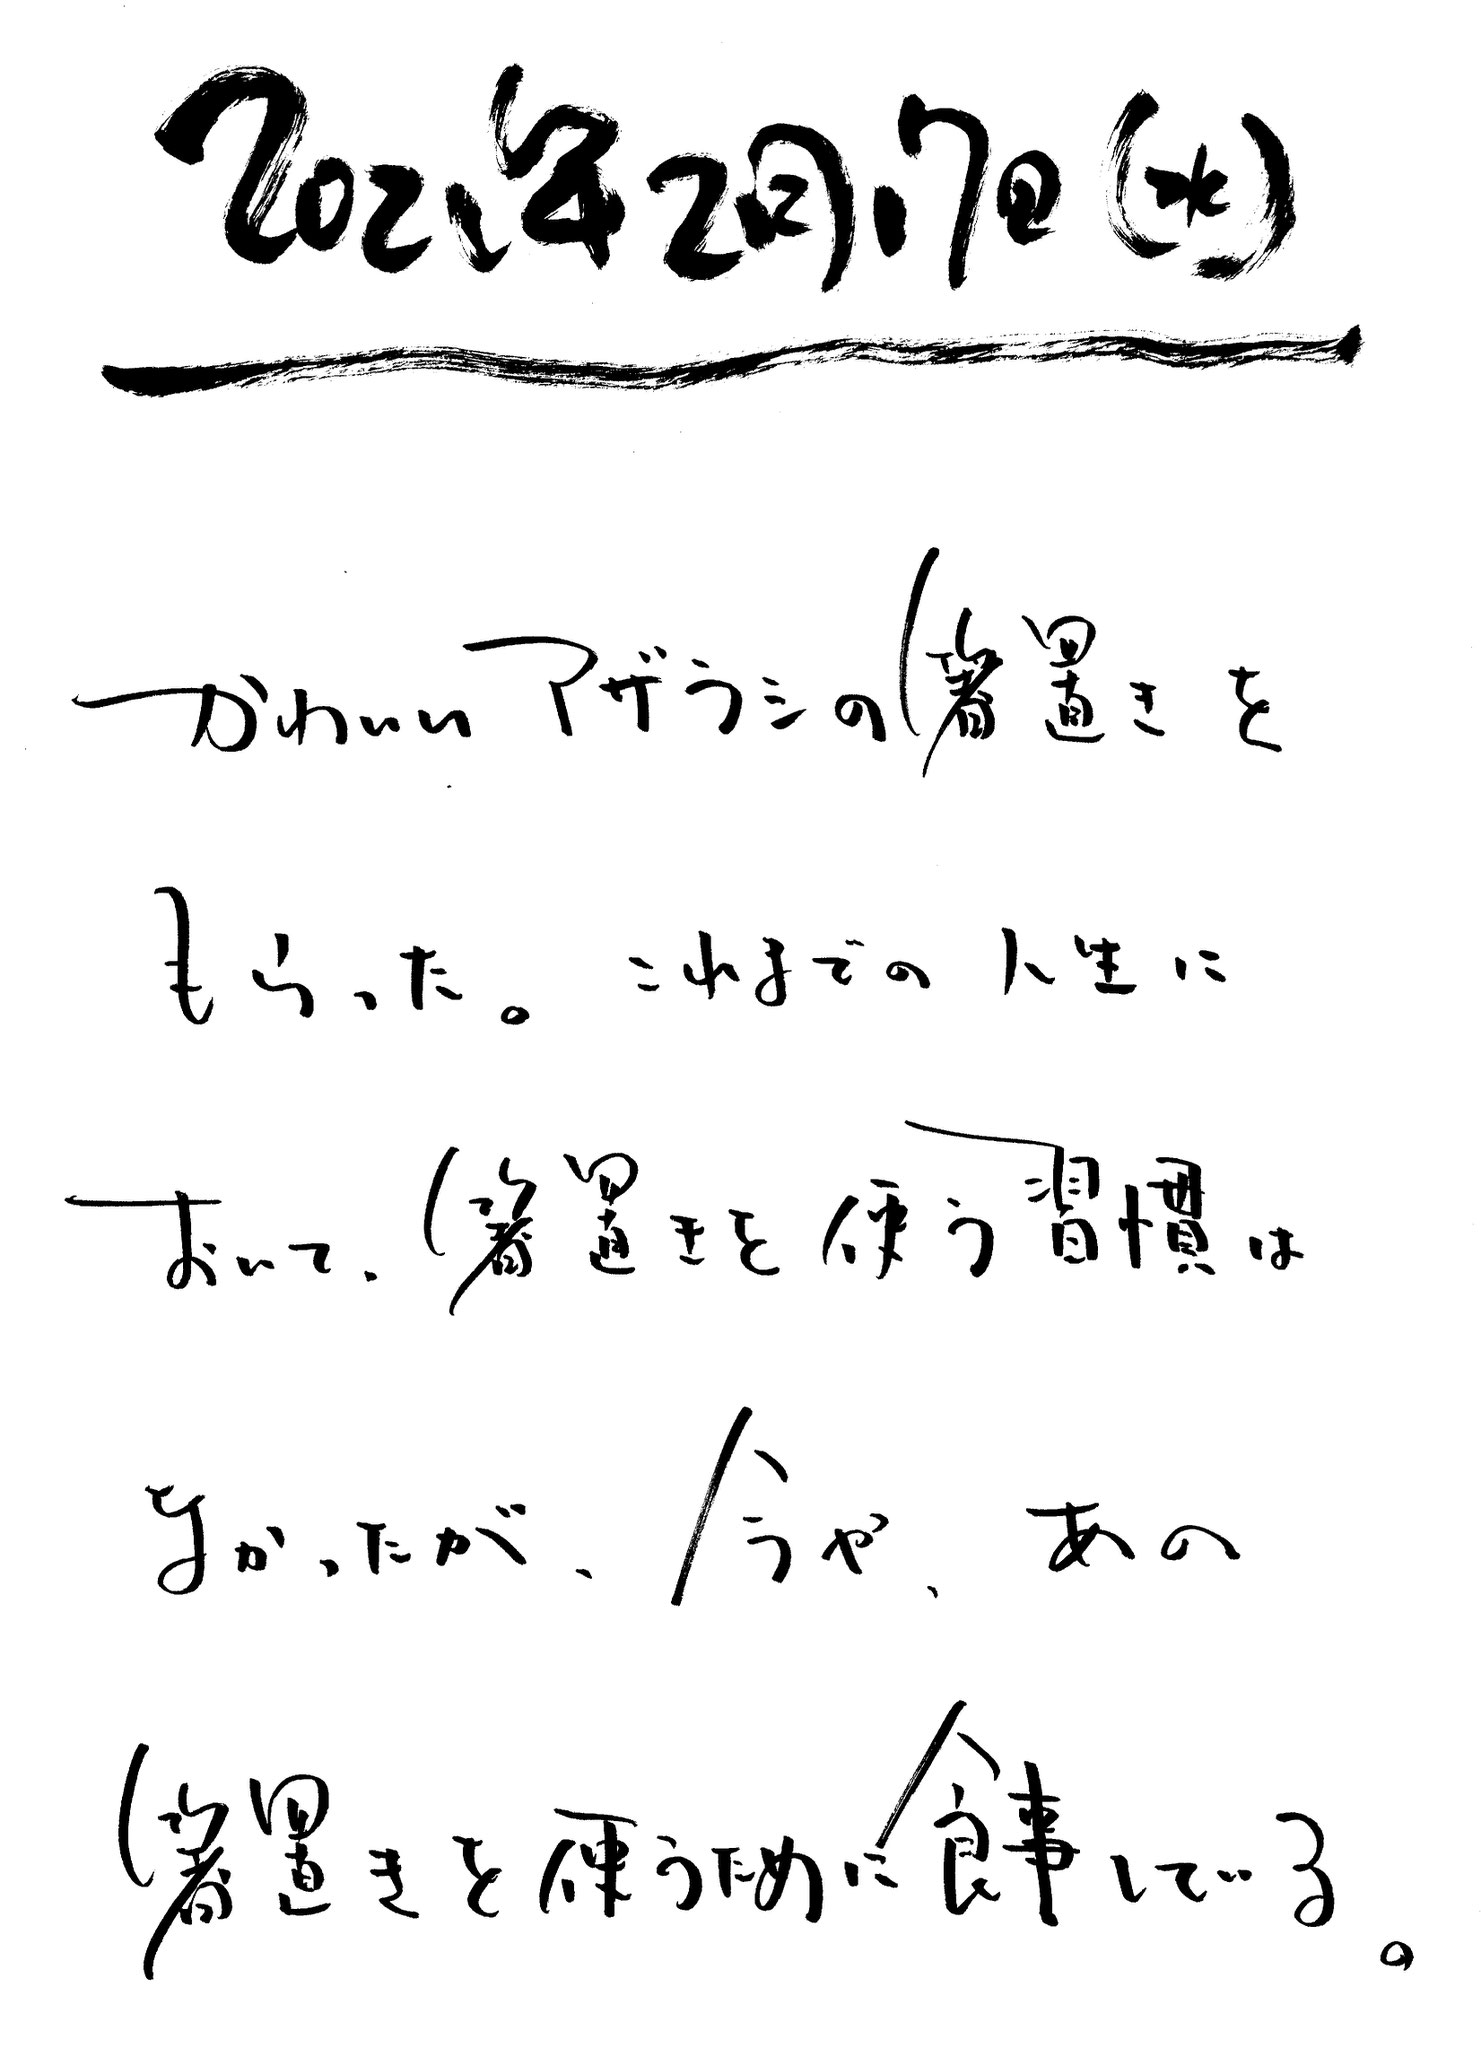 2021年2月17日(水)
かわいいアザラシの箸置きを
もらった。これまでの人生に
おいて、箸置きを使う習慣は
なかったが、今や、あの
箸置きを使うために食事している。